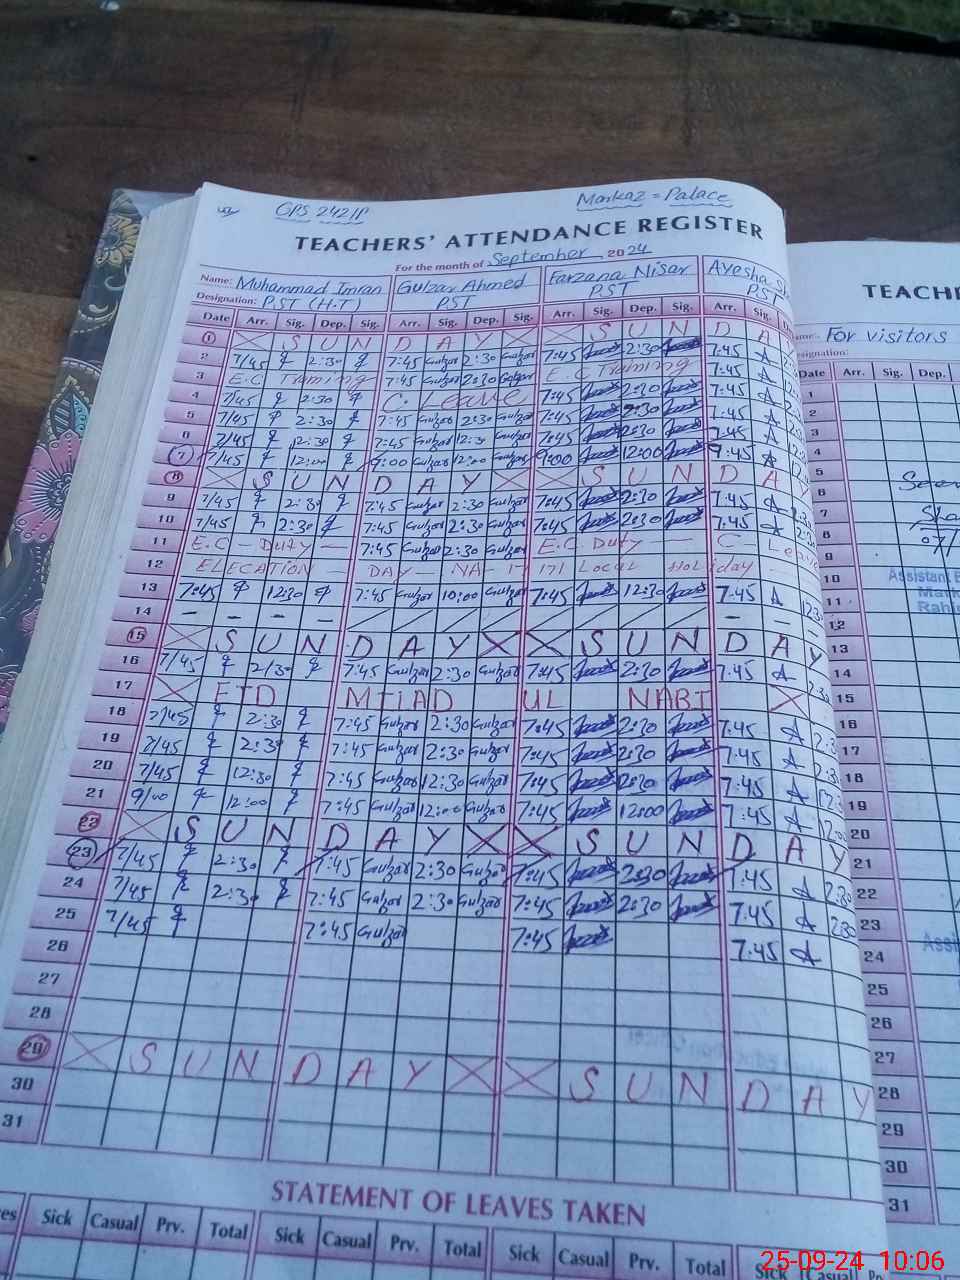 GPS 242/P Markaz = Palace
TEACHERS' ATTENDANCE REGISTER
For the month of September 2024
Name: Muhammad Imran Gulzar Ahmed Farzana Nisar Ayesha
Designation: PST (H.T) PST PST PST
Date Arr. Sig. Dep. Sig. Arr. Sig. Dep. Sig. Arr. Sig. Dep. Sig. Arr. Sig.
1 X S U N D A Y X X S U N D A
2 7/45 2:30 7:45 Gulzar 2:30 Gulzar 7:45 2:30 7:45
3 E.C Training 7:45 Gulzar 2:30 Gulzar E.C Training 7:45
4 7/45 2:30 C. Leave 7:45 2:30 7:45
5 7/45 2:30 7:45 Gulzar 2:30 Gulzar 7:45 2:30 7:45
6 7/45 2:30 7:45 Gulzar 12:30 Gulzar 7:45 2:30 7:45
7 7/45 12:00 9:00 Gulzar 12:00 Gulzar 9:00 12:00 7:45
8 X S U N D A Y X X S U N D A Y
9 7/45 2:30 7:45 Gulzar 2:30 Gulzar 7:45 2:30 7:45
10 7/45 2:30 7:45 Gulzar 2:30 Gulzar 7:45 2:30 7:45
11 E.C - Duty — 7:45 Gulzar 2:30 Gulzar E.C Duty — C Leave
12 ELECATION — DAY — NA- 171 Local Holiday
13 7:45 12:30 7:45 Gulzar 10:00 Gulzar 7:45 12:30 7:45 12:30
14 - - - - / / / / / / / / - - -
15 X S U N D A Y X X S U N D A Y
16 7/45 2/30 7:45 Gulzar 2:30 Gulzar 7:45 2:30 7:45
17 X EID MILAD UL NABI X
18 7/45 2:30 7:45 Gulzar 2:30 Gulzar 7:45 2:30 7:45
19 7/45 2:30 7:45 Gulzar 2:30 Gulzar 7:45 2:30 7:45
20 7/45 12:30 7:45 Gulzar 12:30 Gulzar 7:45 12:30 7:45
21 9/00 12:00 7:45 Gulzar 12:00 Gulzar 7:45 12:00 7:45
22 X S U N D A Y X X S U N D A Y
23 7/45 2:30 7:45 Gulzar 2:30 Gulzar 7:45 2:30 7:45 2:30
24 7/45 2:30 7:45 Gulzar 2:30 Gulzar 7:45 2:30 7:45 2:30
25 7/45 7:45 Gulzar 7:45 7:45
26
27
28
29 X S U N D A Y X X S U N D A Y
30
31
STATEMENT OF LEAVES TAKEN
Sick Casual Prv. Total Sick Casual Prv. Total Sick Casual Prv. Total Sick Casual
For visitors
Date Arr. Sig. Dep.
1
2
3
4
5
6
7
8
07/
9
10 Assistant
11
12
13
14
15
16
17
18
19
20
21
22
23
24
25
26
27
28
29
30
31
25-09-24 10:06